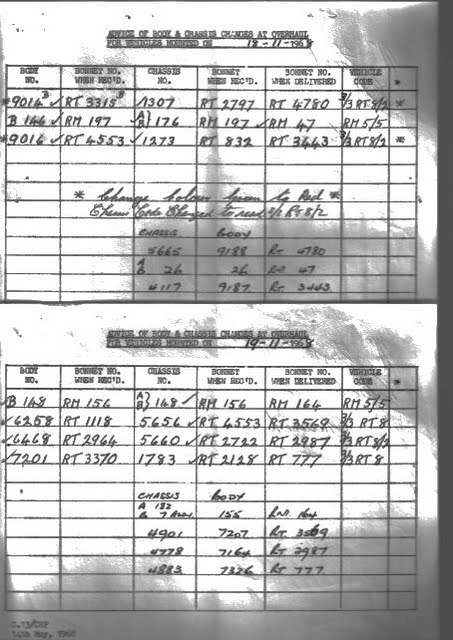 ADVICE OF BODY & CHASSIS CHANGES AT OVERHAUL
FOR VEHICLES MOUNTED ON 18-11-1968
BODY NO. BONNET NO. WHEN REC'D. CHASSIS NO. BONNET WHEN REC'D. BONNET NO. WHEN DELIVERED VEHICLE CODE *
*9014 B ✓ RT 3318 B ✓1307 RT 2797 RT 4780 3/3 RT8/2 *
B 146 ✓ RM 197 A B} 176 RM 197 ✓ RM 47 RM 5/5
*9016 ✓ RT 4553 ✓1273 RT 832 RT 3443 3/3 RT8/2 *
* Change colour Green to Red *
Changed to read 3/2 RT 8/2
CHASSIS BODY
5665 9188 RT 4780
A B 26 26 RM 47
4117 9187 RT 3443
ADVICE OF BODY & CHASSIS CHANGES AT OVERHAUL
FOR VEHICLES MOUNTED ON 19-11-1968
BODY NO. BONNET NO. WHEN REC'D. CHASSIS NO. BONNET WHEN REC'D. BONNET NO. WHEN DELIVERED VEHICLE CODE *
B 148 RM 156 A B} 148 ✓ RM 156 RM 164 RM 5/5
✓6258 RT 1118 5656 ✓ RT 4553 RT 3569 3/3 RT8
✓6468 RT 2964 5660 ✓ RT 2722 RT 2987 3/3 RT8/2
✓7201 RT 3370 1783 ✓ RT 2128 RT 777 3/3 RT8
CHASSIS BODY
A 182
B 7 155 RM 164
4901 7207 RT 3569
4778 7164 RT 2987
4883 7326 RT 777
14th May, 1968